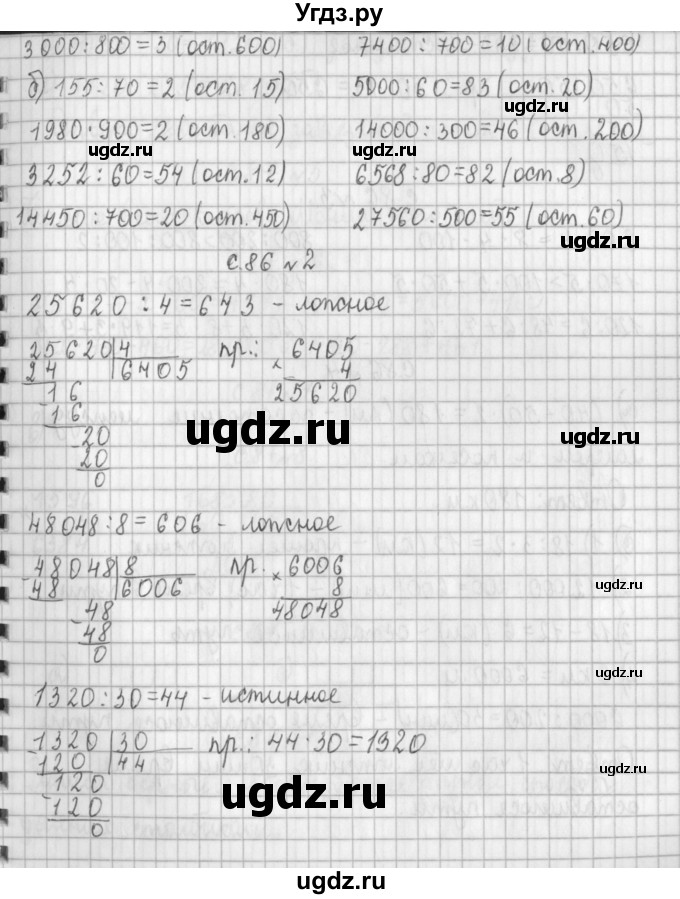 Угдз.ру
3000:800=3 (ост.600) 7400:700=10 (ост.400)
б) 155:70=2 (ост. 15) 5000:60=83 (ост. 20)
1980·900=2 (ост.180) 14000:300=46 (ост. 200)
3252:60=54 (ост.12) 6568:80=82 (ост.8)
14450:700=20 (ост.450) 27560:500=55 (ост.60)
с.86 №2
25620:4=643 - ложное
25620 4 пр.: 6405
24 6405 × 4
16 25620
16
20
20
0
48048:8=606 - ложное
48048 8 пр. × 6006
48 6006 8
48 48048
48
0
1320:30=44 - истинное
1320 30 пр.: 44·30=1320
120 44
120
120
0
ugdz.ru
ugdz.ru
ugdz.ru
ugdz.ru
ugdz.ru
ugdz.ru
ugdz.ru
ugdz.ru
ugdz.ru
ugdz.ru
ugdz.ru
ugdz.ru